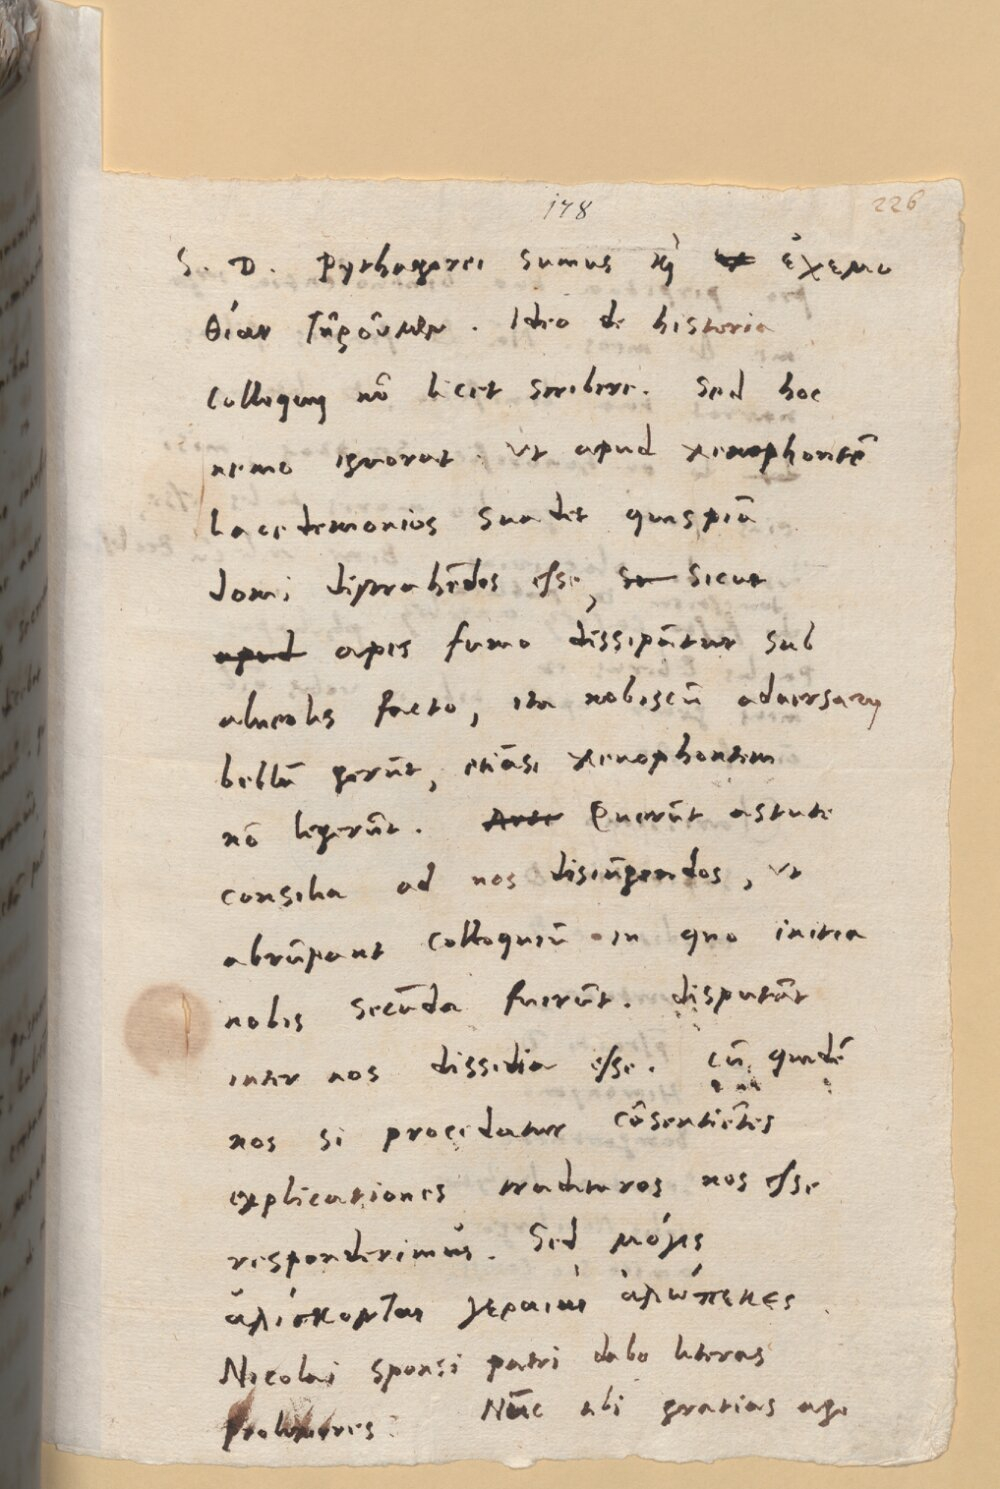 178
226
S. D. Pythagorei sumus κὶ ἐχεμυ
θίαν τηροῦμεν. Ideo de historia
Colloquij nō licet scribere. Sed hoc
nemo ignorat. Vt apud xenophontē
Lacedemonios suadet quispiā
domi opprimēdos esse, sicut
apud apes fumo dissipātur sub
alueolis facto, ita nobiscū aduersarij
bellū gerūt, etiāsi xenophontem
nō legerūt. Querūt astute
consilia ad nos disiūgendos, vt
abrūpant Colloquiū in quo initia
nobis secūda fuerūt. disputāt
inter nos dissidia esse. cū quidē
nos si procedatur cōsentiētes
explicationes tradituros nos esse
responderimus. Sed μόλις
ἁλίσκονται γεραιαὶ ἀλώπεκες
Nicolai sponsi patri dabo literas
Nūc tibi gratias ago